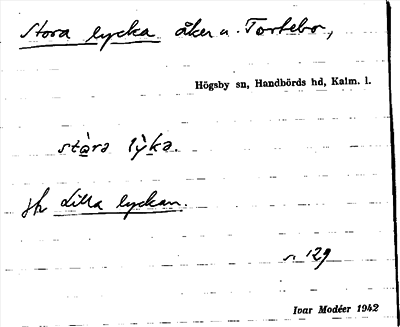 Stora lycka åker u. Tortebo,
Högsby sn, Handbörds hd, Kalm. l.
stàra lỳka.
jfr Lilla lyckan.
n. 129
Ivar Modéer 1942